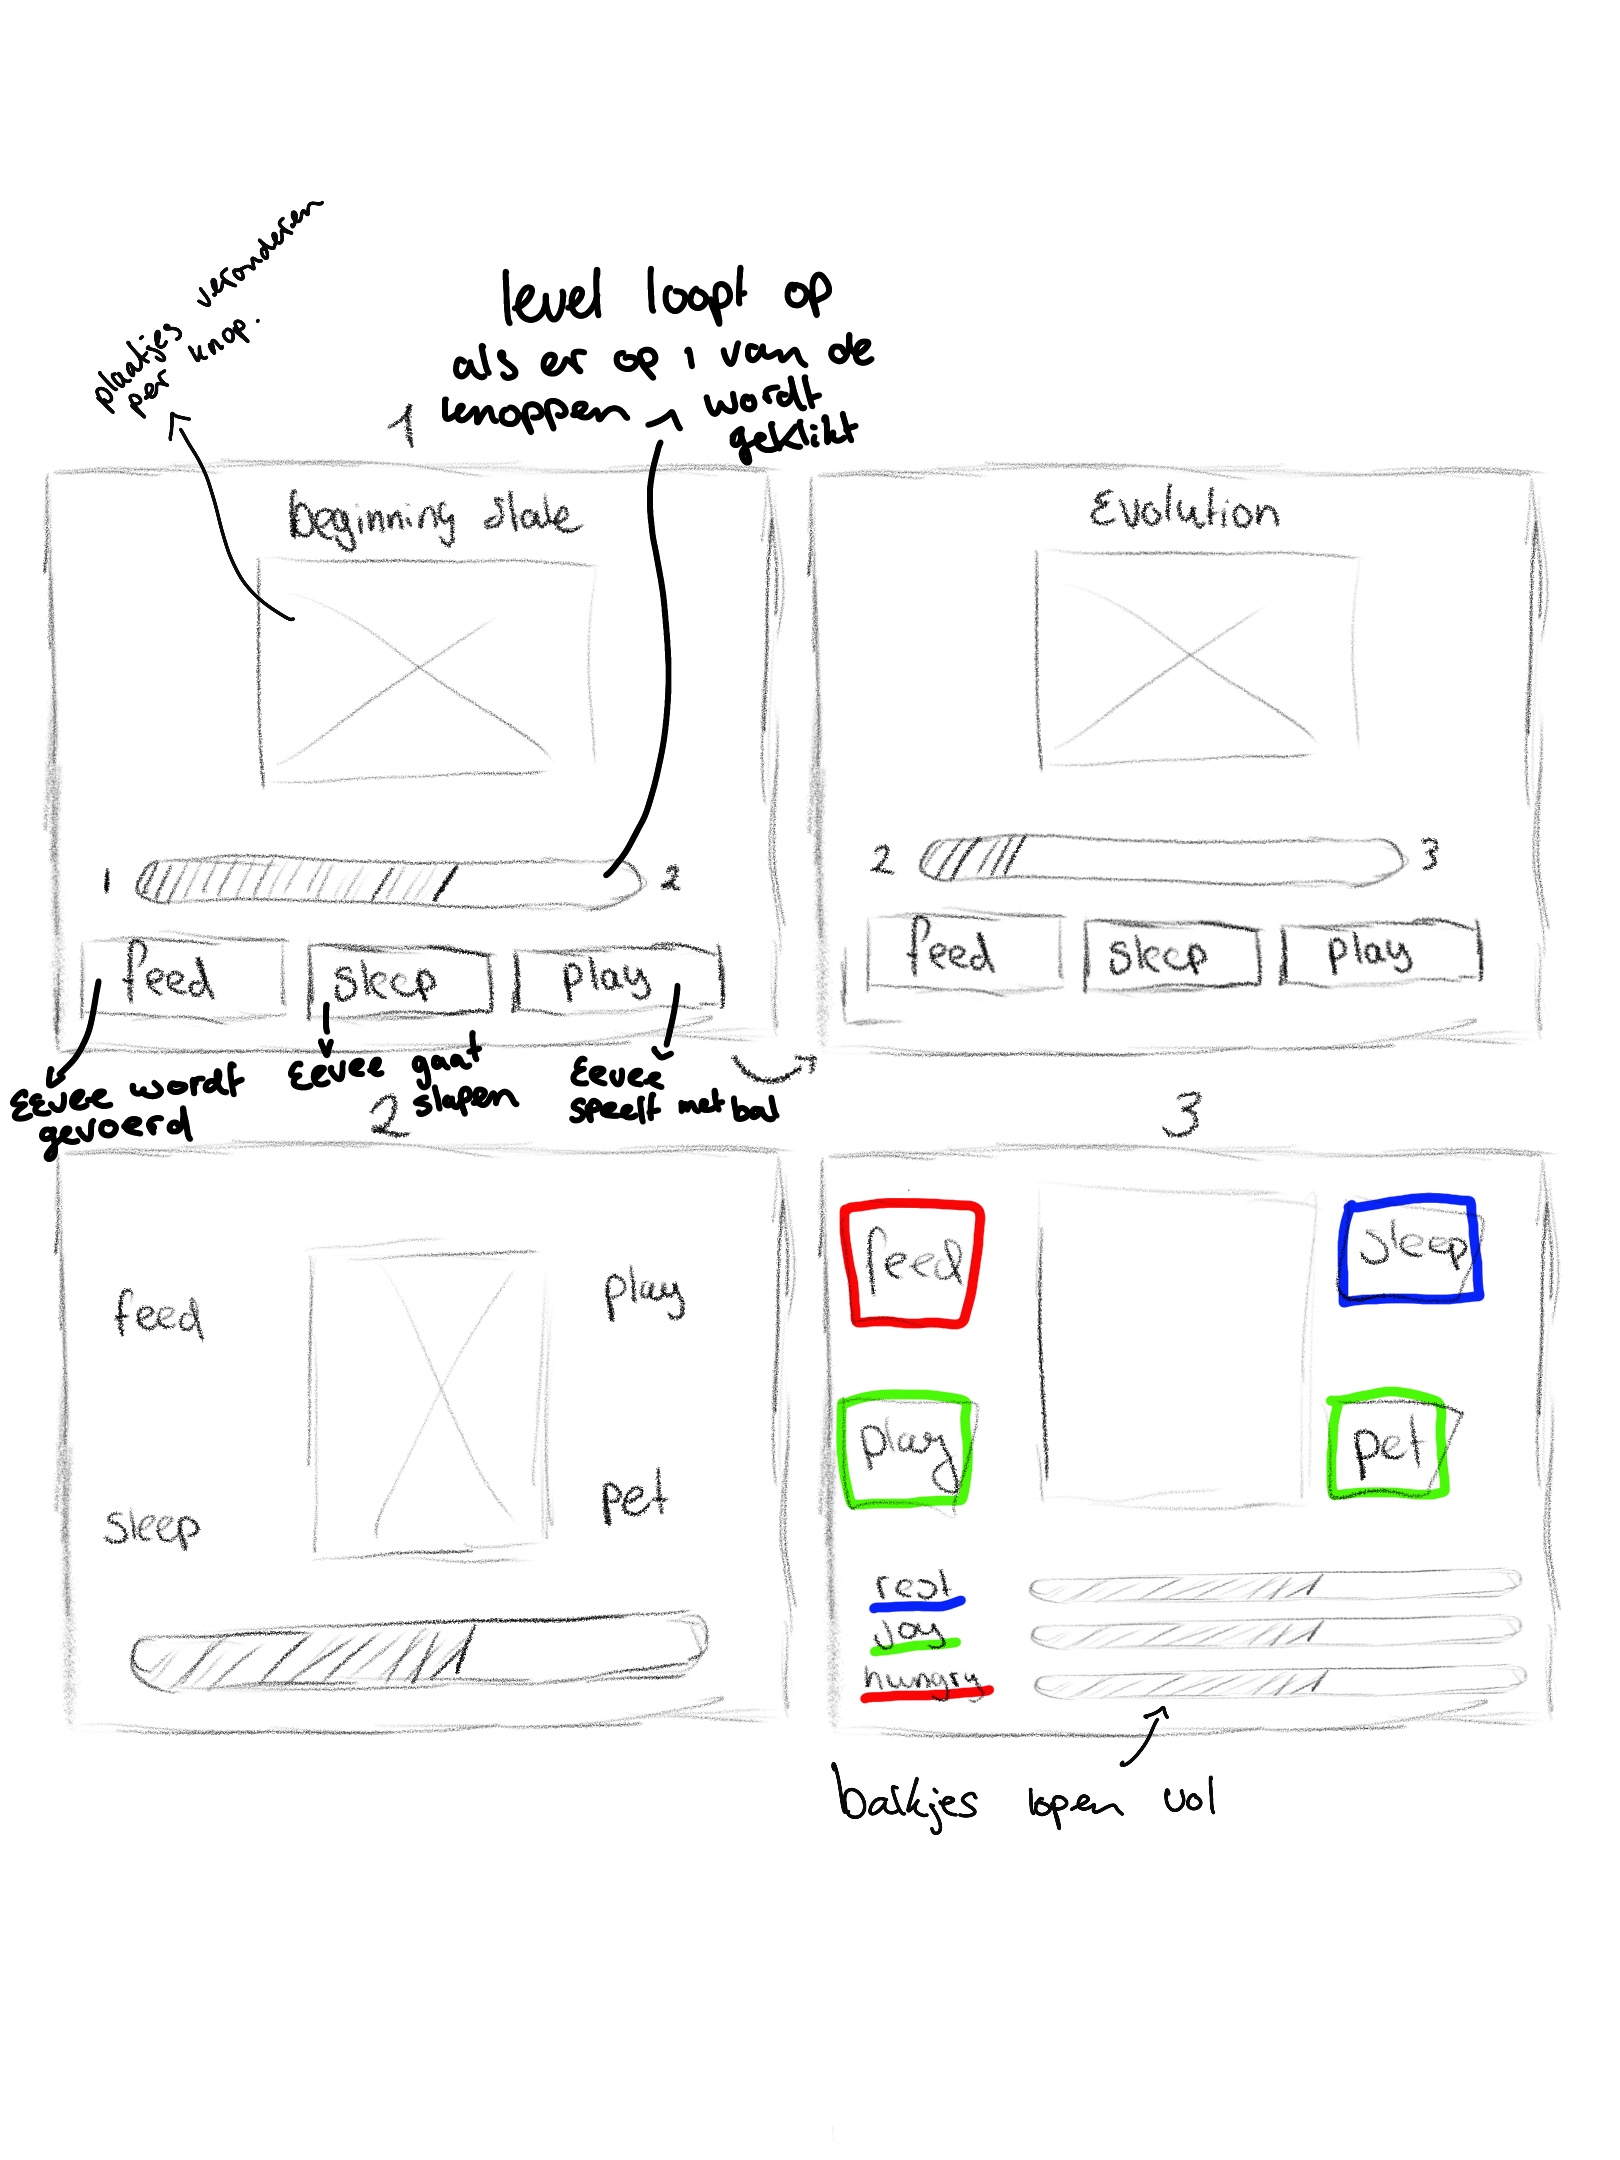 plaatjes veranderen
per knop.
level loopt op
als er op 1 van de
knoppen wordt
geklikt
1
beginning state
1 2
feed sleep play
Eevee wordt
gevoerd
Eevee gaat
slapen
Eevee
speelt met bal
Evolution
2 3
feed sleep play
2
feed play
sleep pet
3
feed sleep
play pet
rest
joy
hungry
balkjes lopen vol